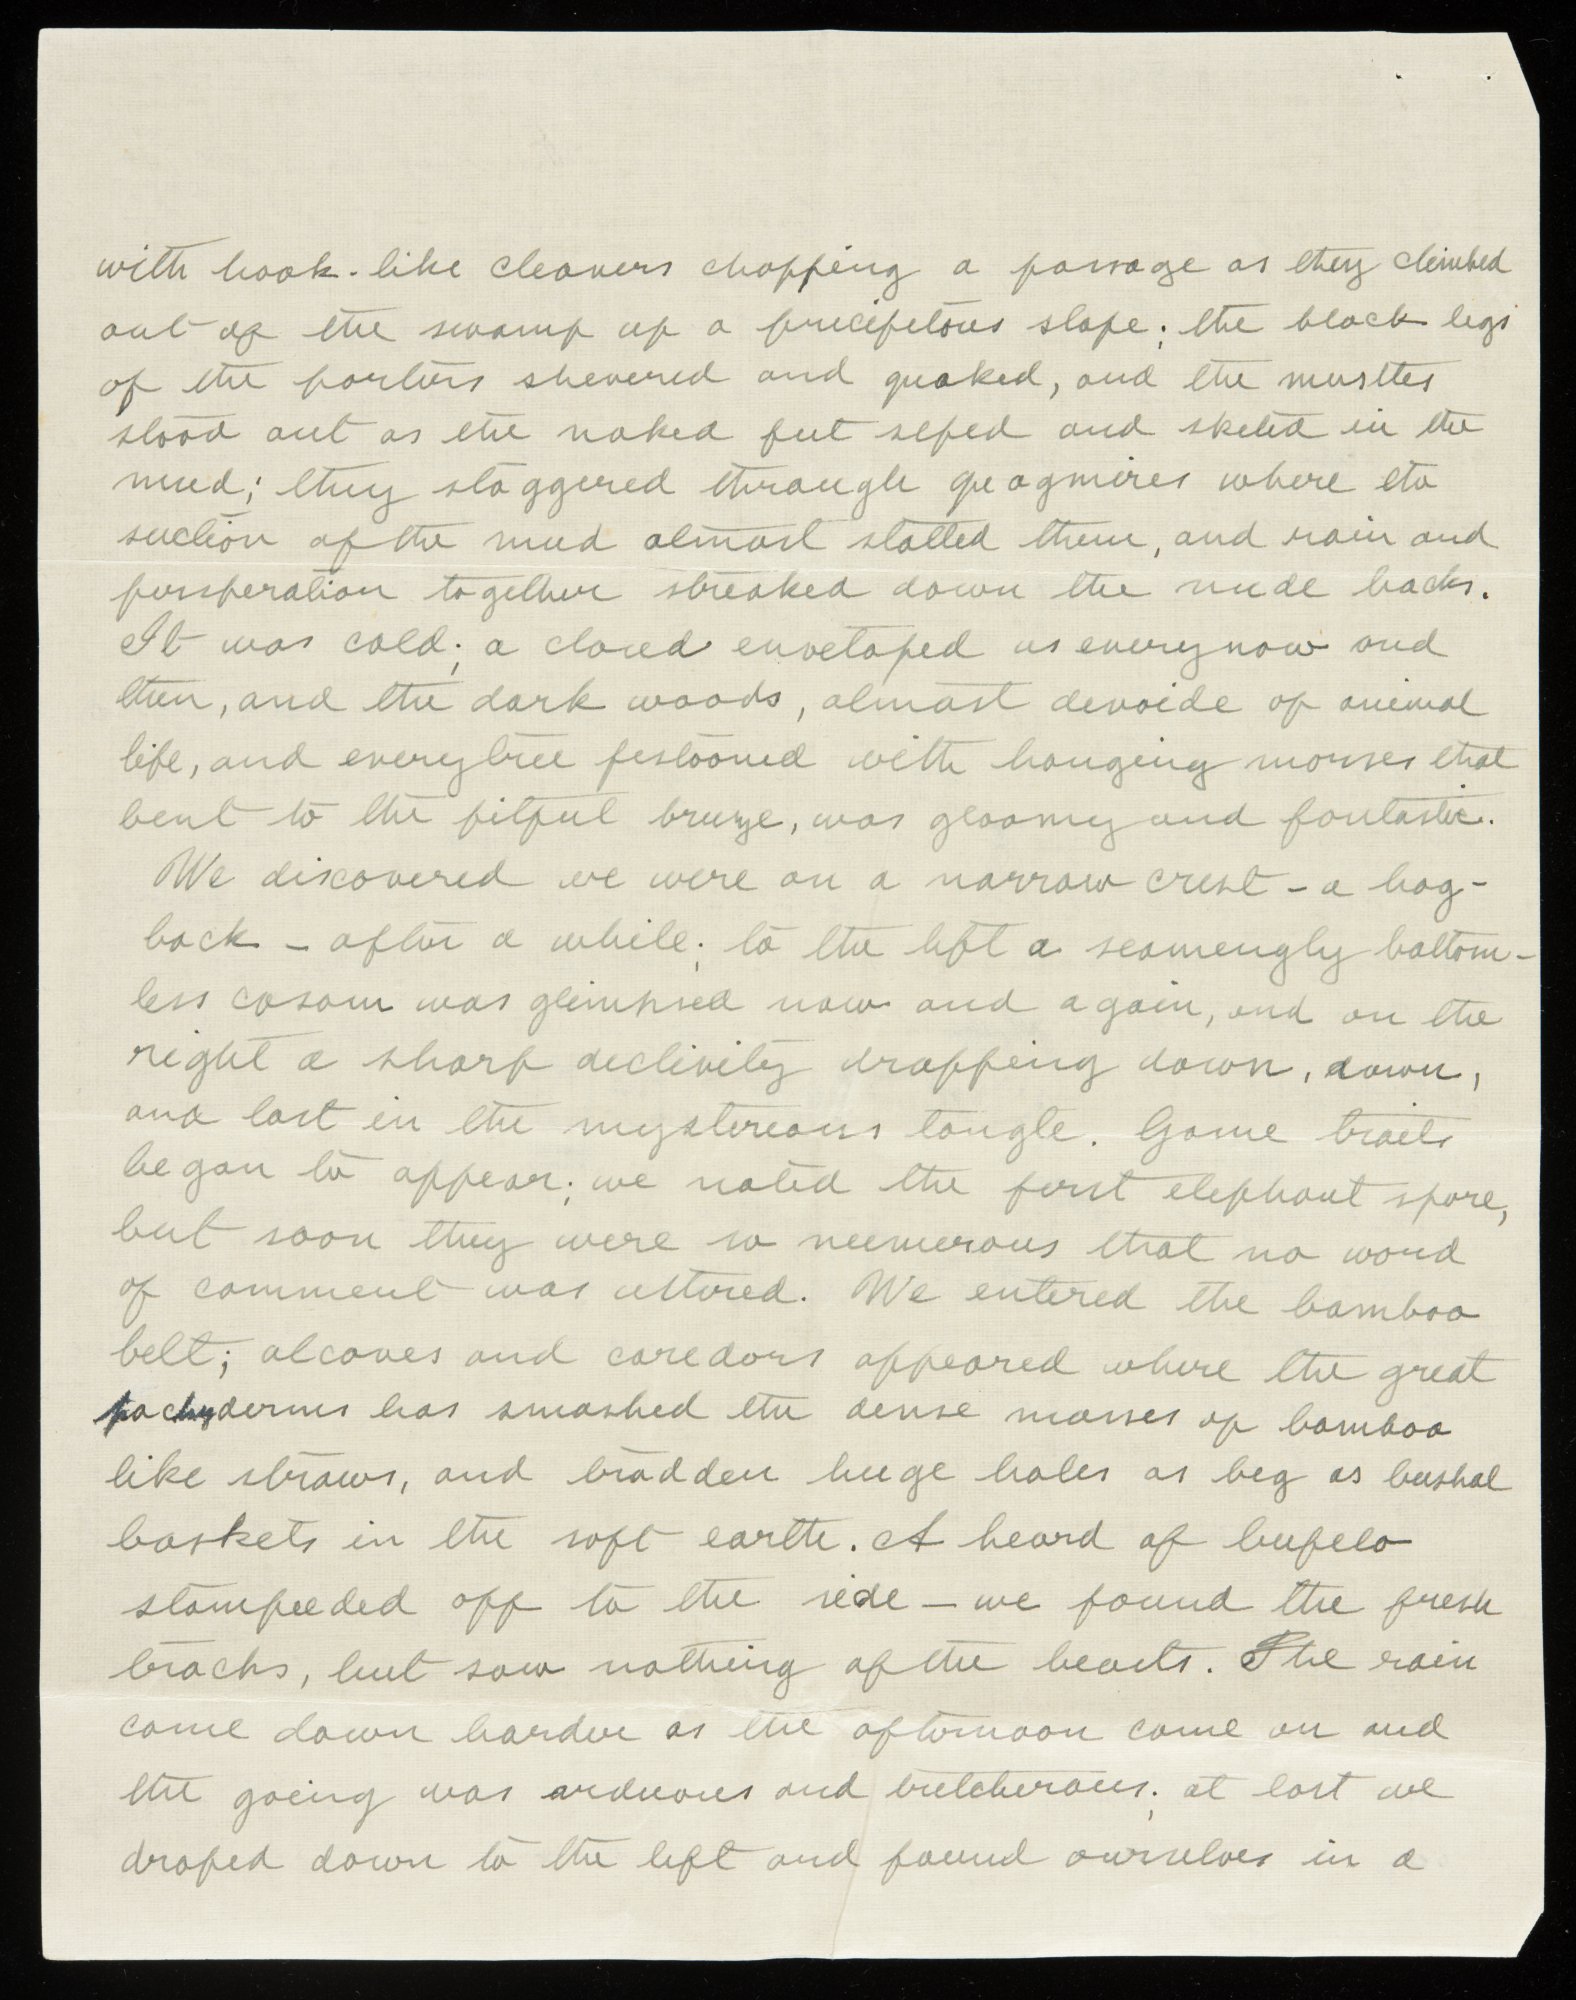 with hook-like cleavers chopping a passage as they climbed
out of the swamp up a pricipetous slope; the black legs
of the porters shevered and quaked, and the musltes
stood out as the naked feet sliped and skided in the
mud; they staggered through quagmires where the
suction of the mud almost stalled them, and rain and
perssperation together streaked down the nude backs.
It was cold; a cloud envelaped us everynow and
then, and the dark woods, almost devoide of animal
life, and everytree festooned with hanging mosses that
bent to the fitful breeze, was gloomy and fantastic.
We discovered we were on a narrow crest - a hog-
back - after a while; to the left a seamengly bottom-
less casam was glimpsed now and again, and on the
right a sharp declivity dropping down, down,
and lost in the mystereous tangle. Game trails
began to appear; we noted the first elephant spore,
but soon they were so neumerous that no word
of comment was uttered. We entered the bamboo
belt; alcoves and caredors appeared where the great
pachyderms has smashed the dense masses of bamboo
like straws, and trodden huge holes as beg as bushal
baskets in the soft earth. A heard of bufelo
stampeeded off to the side - we found the fresh
tracks, but saw nothing of the beasts. The rain
came down harder as the afternoon came on and
the going was arduous and tretcherous; at last we
droped down to the left and found ourselves in a